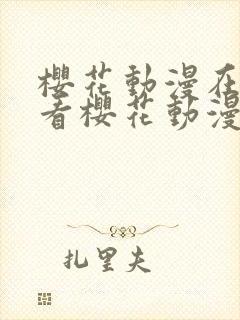 櫻花動漫在
看櫻花動漫
扎里夫